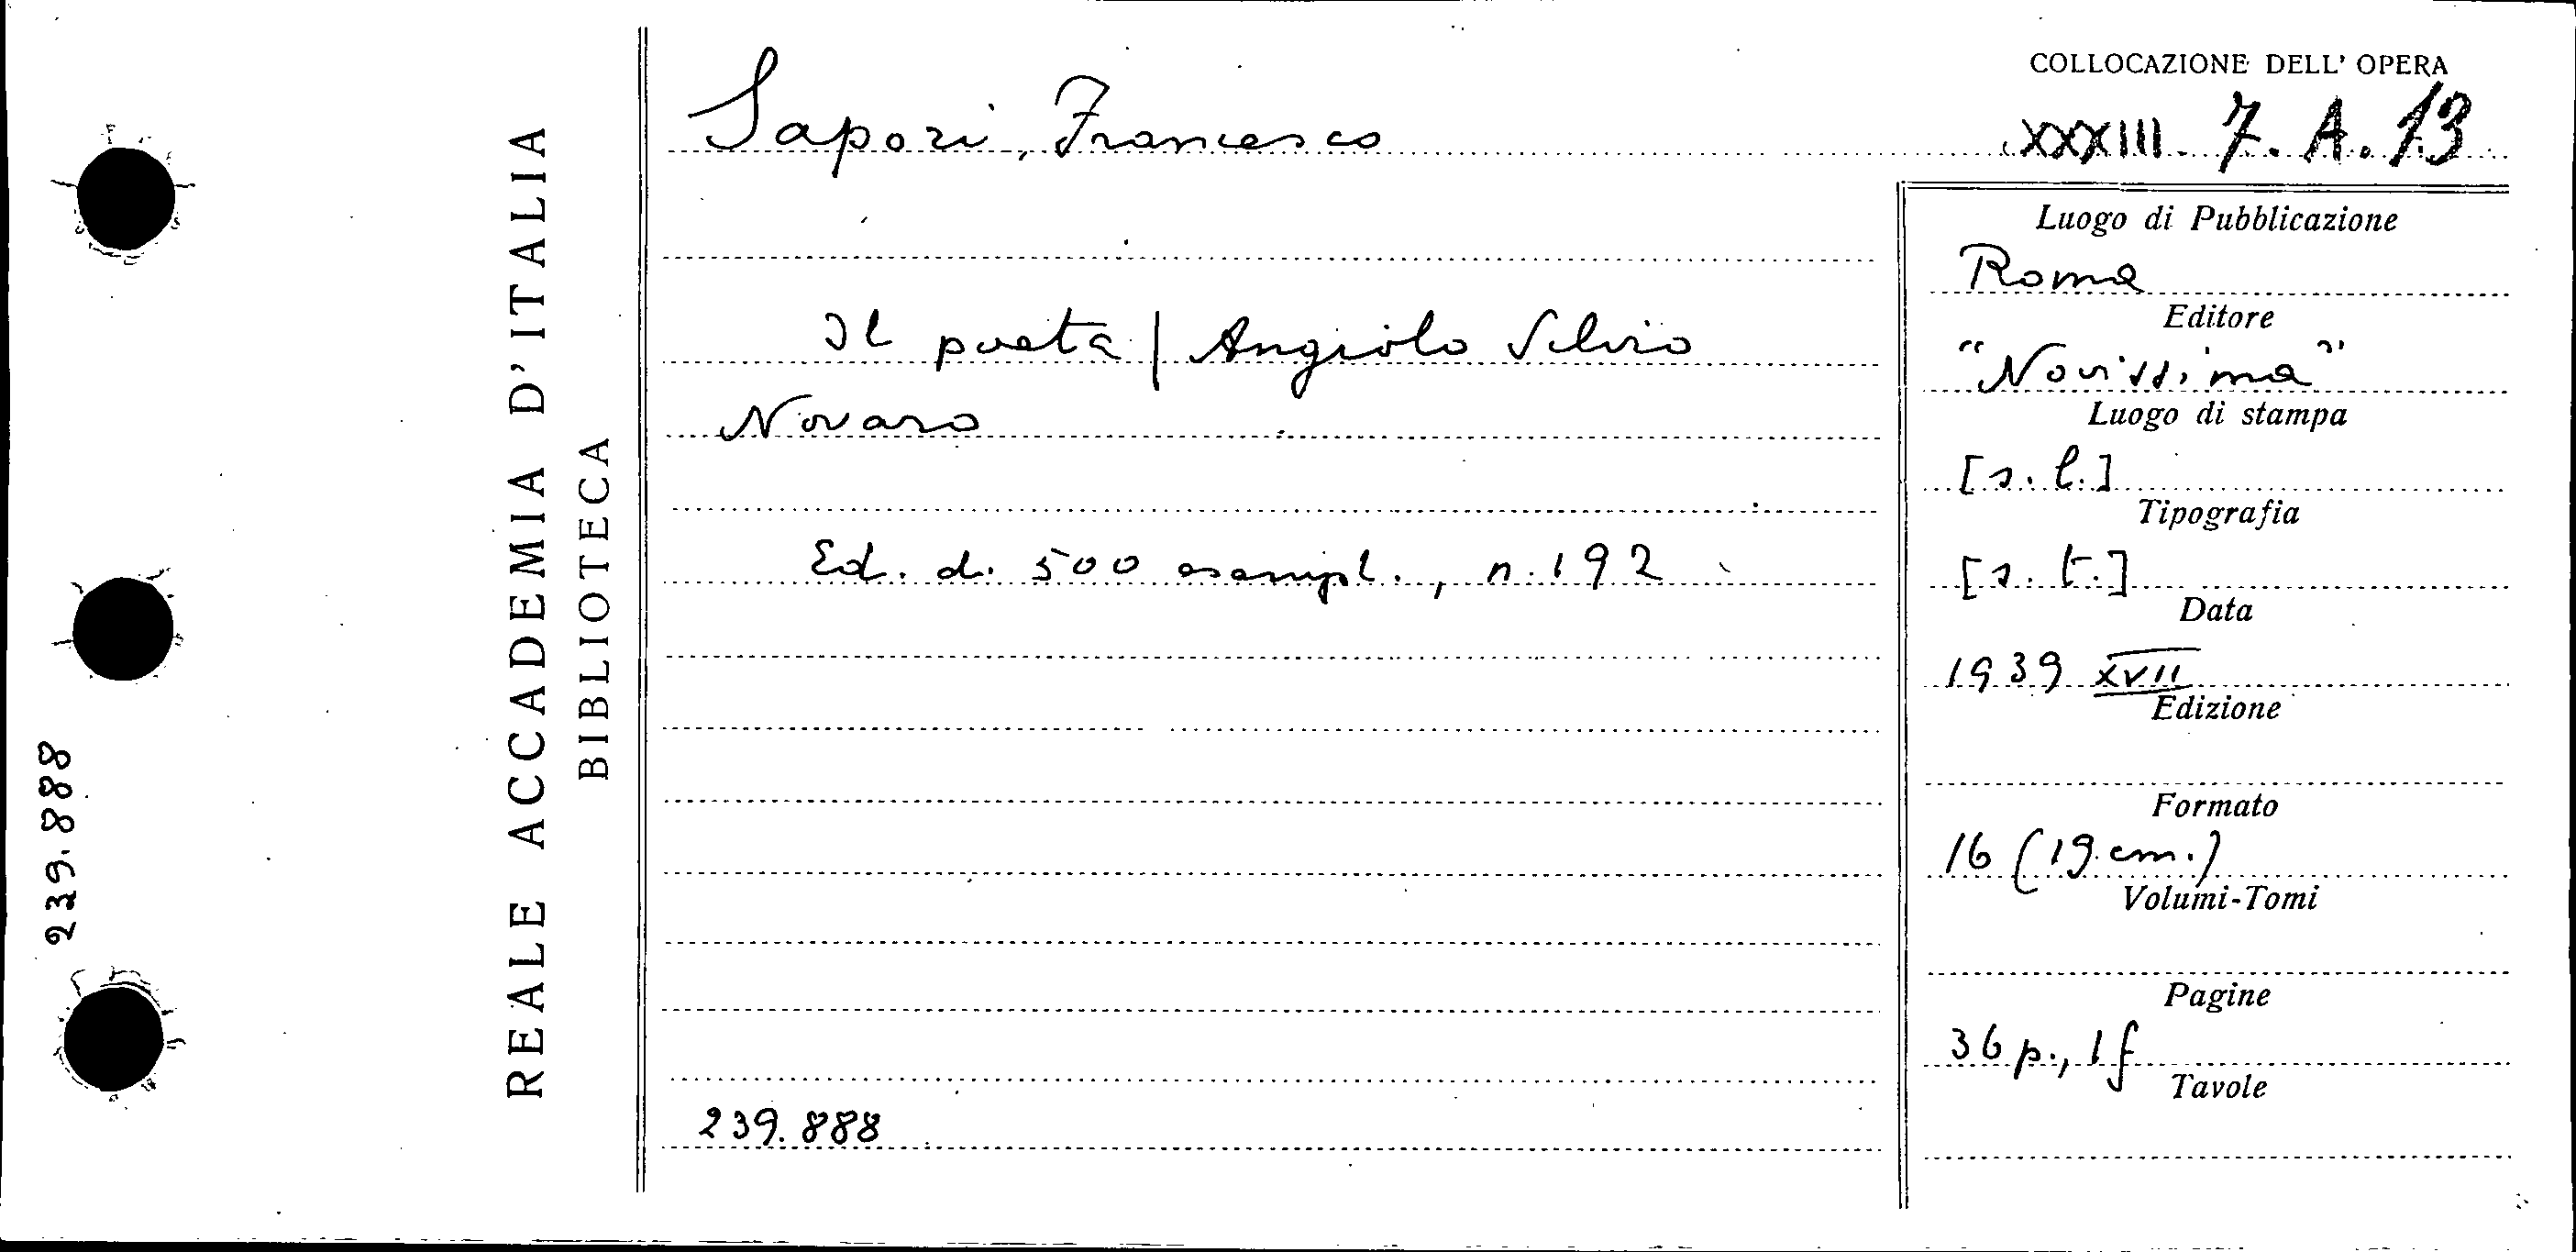 REALE ACCADEMIA D'ITALIA
BIBLIOTECA
239.888
Sapori, Francesco
Il poeta | Angiolo Silvio
Novaro
Ed. di 500 esempl., n. 192
239.888
COLLOCAZIONE DELL' OPERA
XXXIII. 7. A. 13
Luogo di Pubblicazione
Roma
Editore
"Novissima"
Luogo di stampa
[s. l.]
Tipografia
[s. t.]
Data
1939 XVII
Edizione
Formato
16 (19 cm.)
Volumi-Tomi
Pagine
36 p., 1 f
Tavole